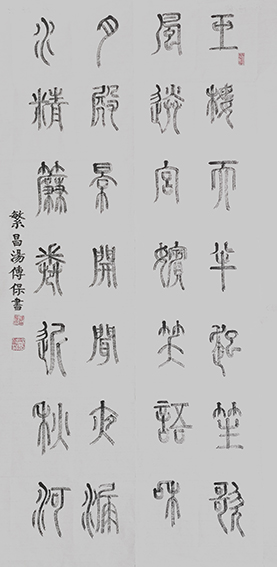 玉樓天半起笙歌
風送宮嬪笑語和
月殿景開聞夜漏
水精簾卷近秋河
繁昌湯傳保書